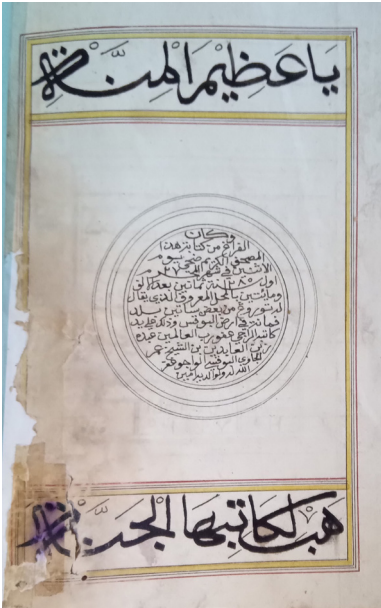 يَا عَظِيْمَ الْمِنَّة
وكان
الفراغ من كتابة هذا
المصحف الكريم ضحى يوم
الاثنين في شهر الله ٢٧ م
اول ١٢٨٥ سنة ثمانين بعد الف
ومائتين بالمحل المعروف الذي يقال
له من بعض بساتين بلد
في ارض البوقس وذلك على يد
كاتبه الراجي عفو رب العالمين عبده
زين العابدين بن الشيخ عمر
الجاوي البوقسي لواجو غفر
الله له ولوالديه امين
هَبْ لِكَاتِبِهَا الْجَنَّة